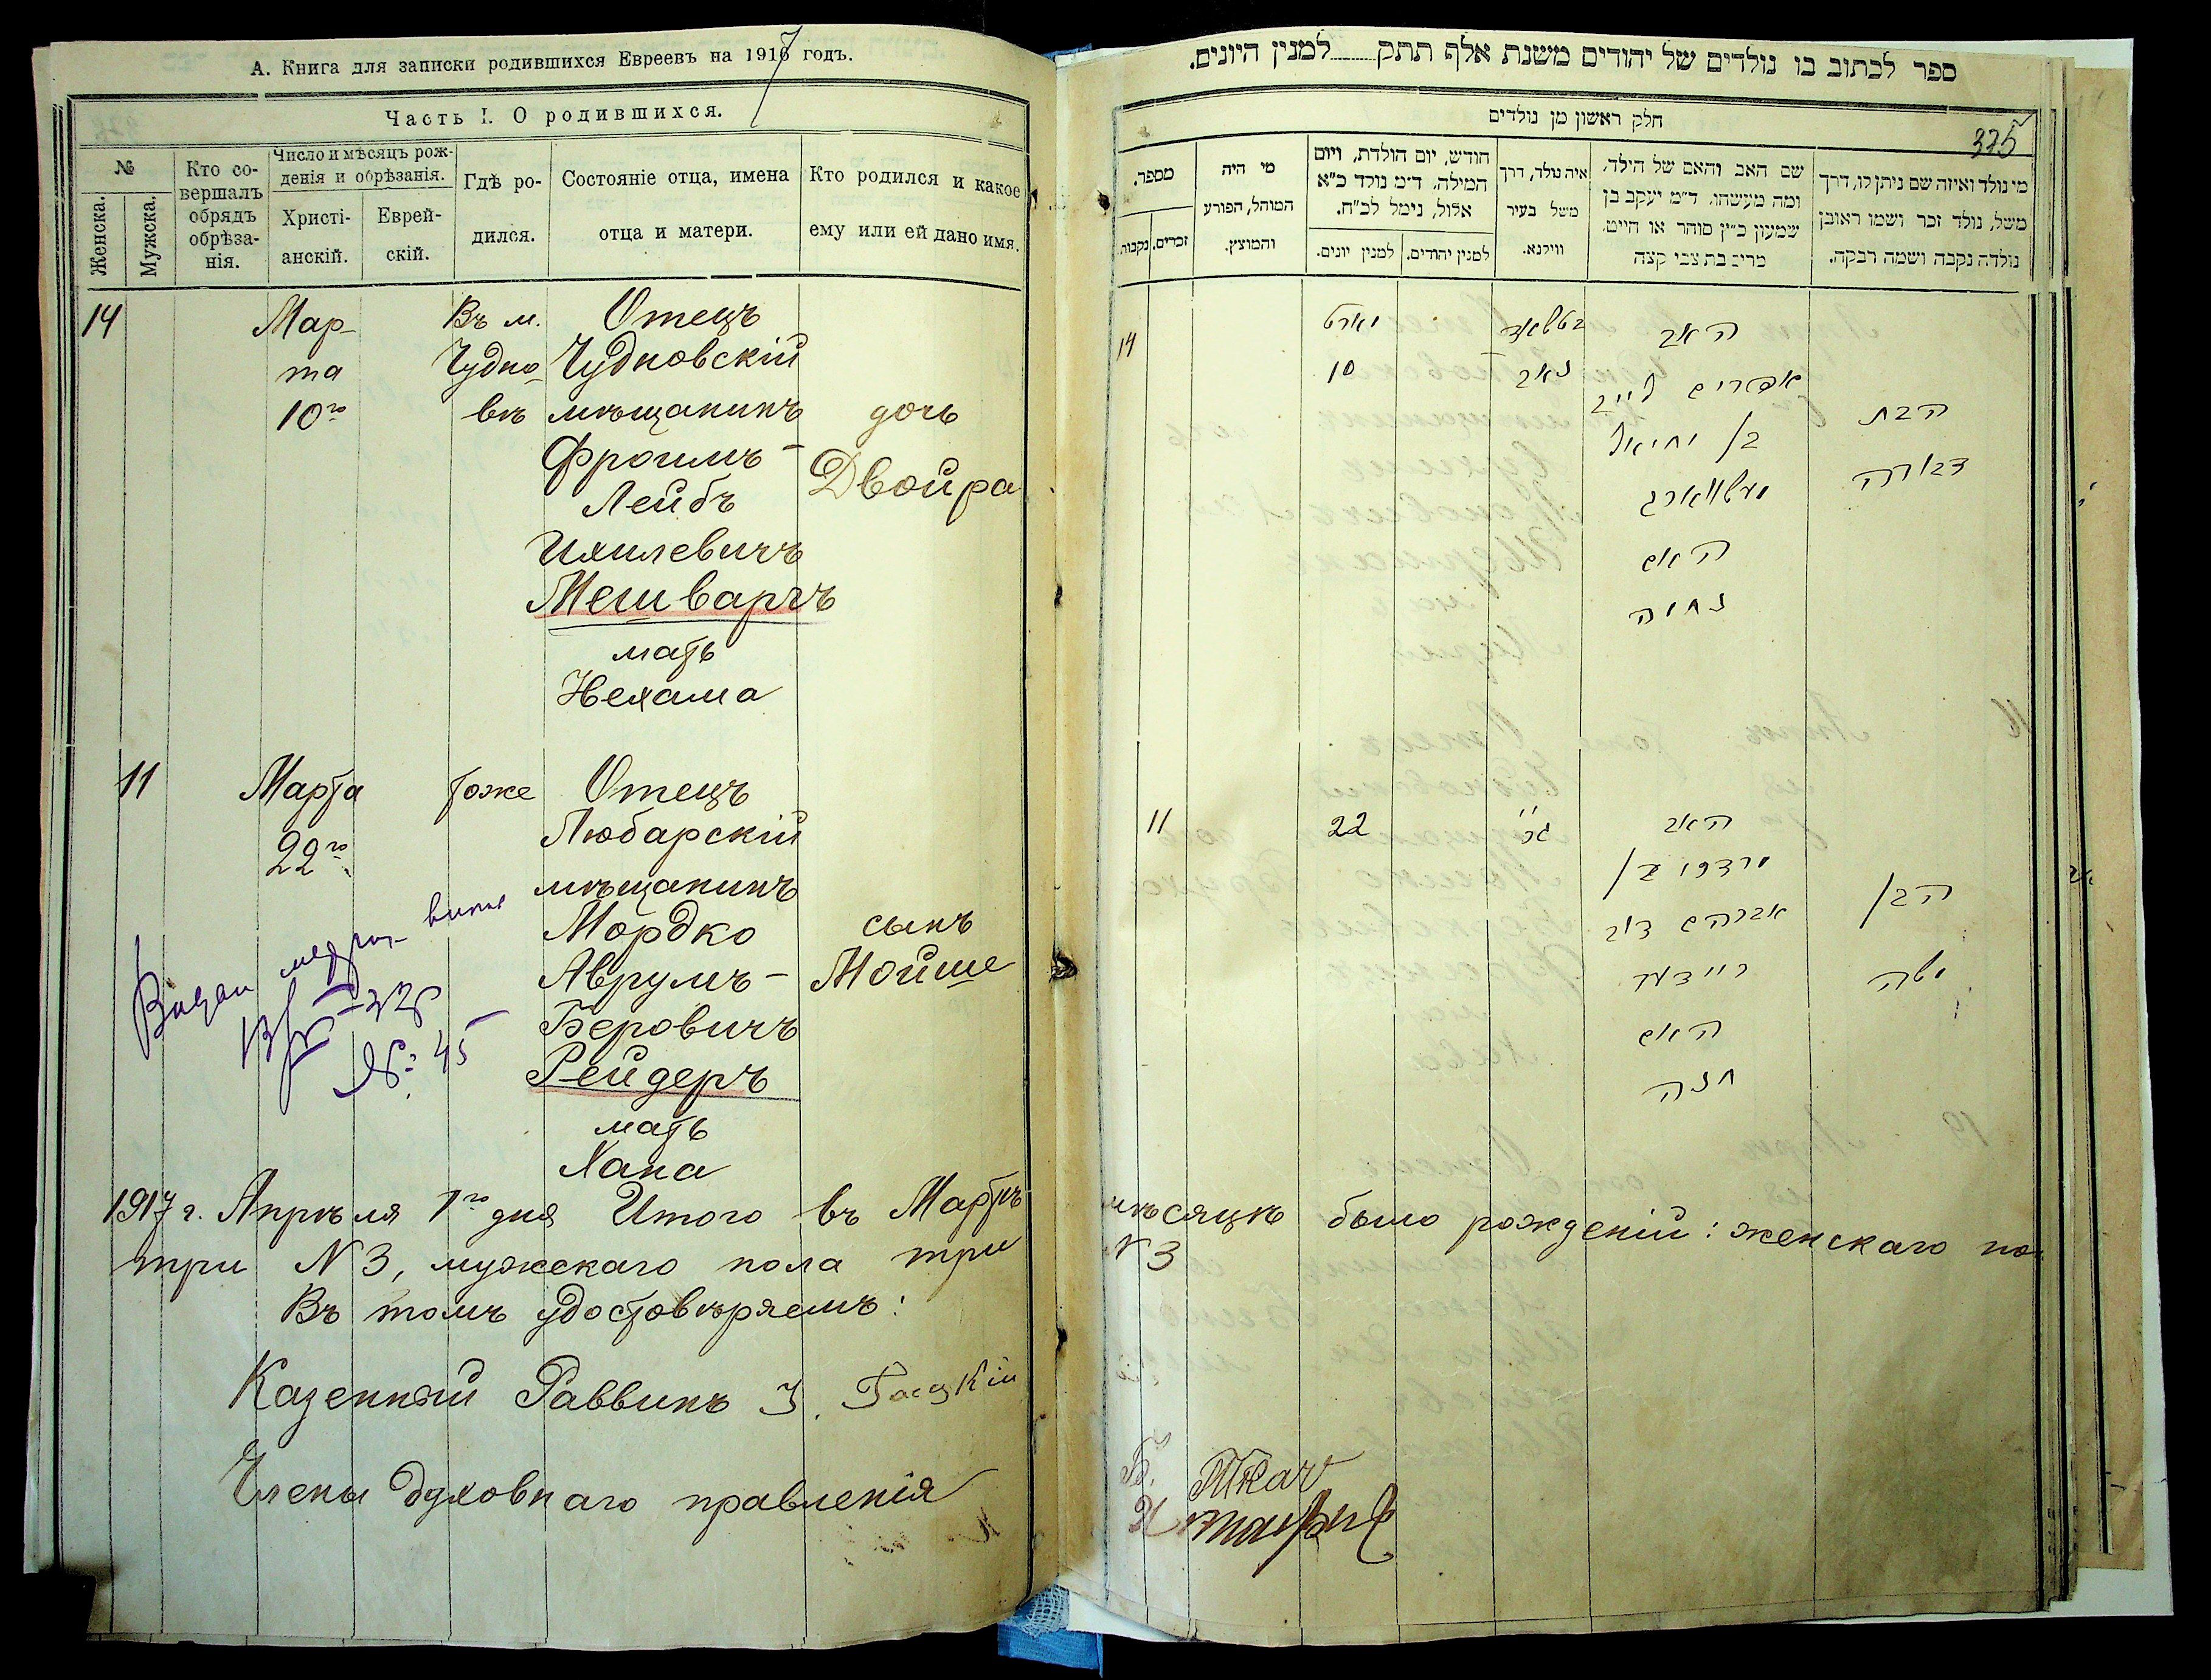 А. Книга для записки родившихся Евреевъ на 1917 годъ.
Часть I. О родившихся.
№
Женска.
Мужска.
Кто со-
вершалъ
обрядъ
обрѣза-
нія.
Число и мѣсяцъ рож-
денія и обрѣзанія.
Христі-
анскій.
Еврей-
скій.
Гдѣ ро-
дился.
Состояніе отца, имена
отца и матери.
Кто родился и какое
ему или ей дано имя.
14
Мар-
та
10го
Въ м.
Чудно-
вѣ
Отецъ
Чудновскій
мѣщанинъ
Фроимъ-
Лейбъ
Ихилевичъ
Мешварцъ
мать
Нехама
дочь
Двойра
11
Марта
22го
тоже
Отецъ
Любарскій
мѣщанинъ
Мордко
Аврумъ-
Беровичъ
Рейдеръ
мать
Хана
сынъ
Мойше
№ 45
1917 г. Апрѣля 1го дня Итого въ Мартѣ
три N 3, мужскаго пола три
Въ томъ удостовѣряемъ:
Казенный Раввинъ
Члены духовнаго правленія
ספר לכתוב בו נולדים של יהודים משנת אלף תתק........למנין היונים.
חלק ראשון מן נולדים
375
מספר.
זכרים.
נקבות.
מי היה
המוהל, הפורע
והמוצץ.
חודש, יום הולדת, ויום
המילה. ד״מ נולד כ״א
אלול, נימל לכ״ח.
למנין יונים.
למנין יהודים.
איה נולד, דרך
משל בעיר
ווילנא.
שם האב והאם של הילד,
ומה מעשהו. ד״מ יעקב בן
שמעון כ״ץ סוהר או הייט.
מרים בת צבי קצה
מי נולד ואיזה שם ניתן לו, דרך
משל, נולד זכר ושמו ראובן
נולדה נקבה ושמה רבקה.
14
מארט
10
האב
אפרים לייב
בן יחיאל
האם
נחמה
הבת
דבורה
11
22
האב
מרדכי בן
אברהם דוב
ריידער
האם
חנה
הבן
משה
мѣсяцѣ было рожденій: женскаго по
N 3
Б. Ткач